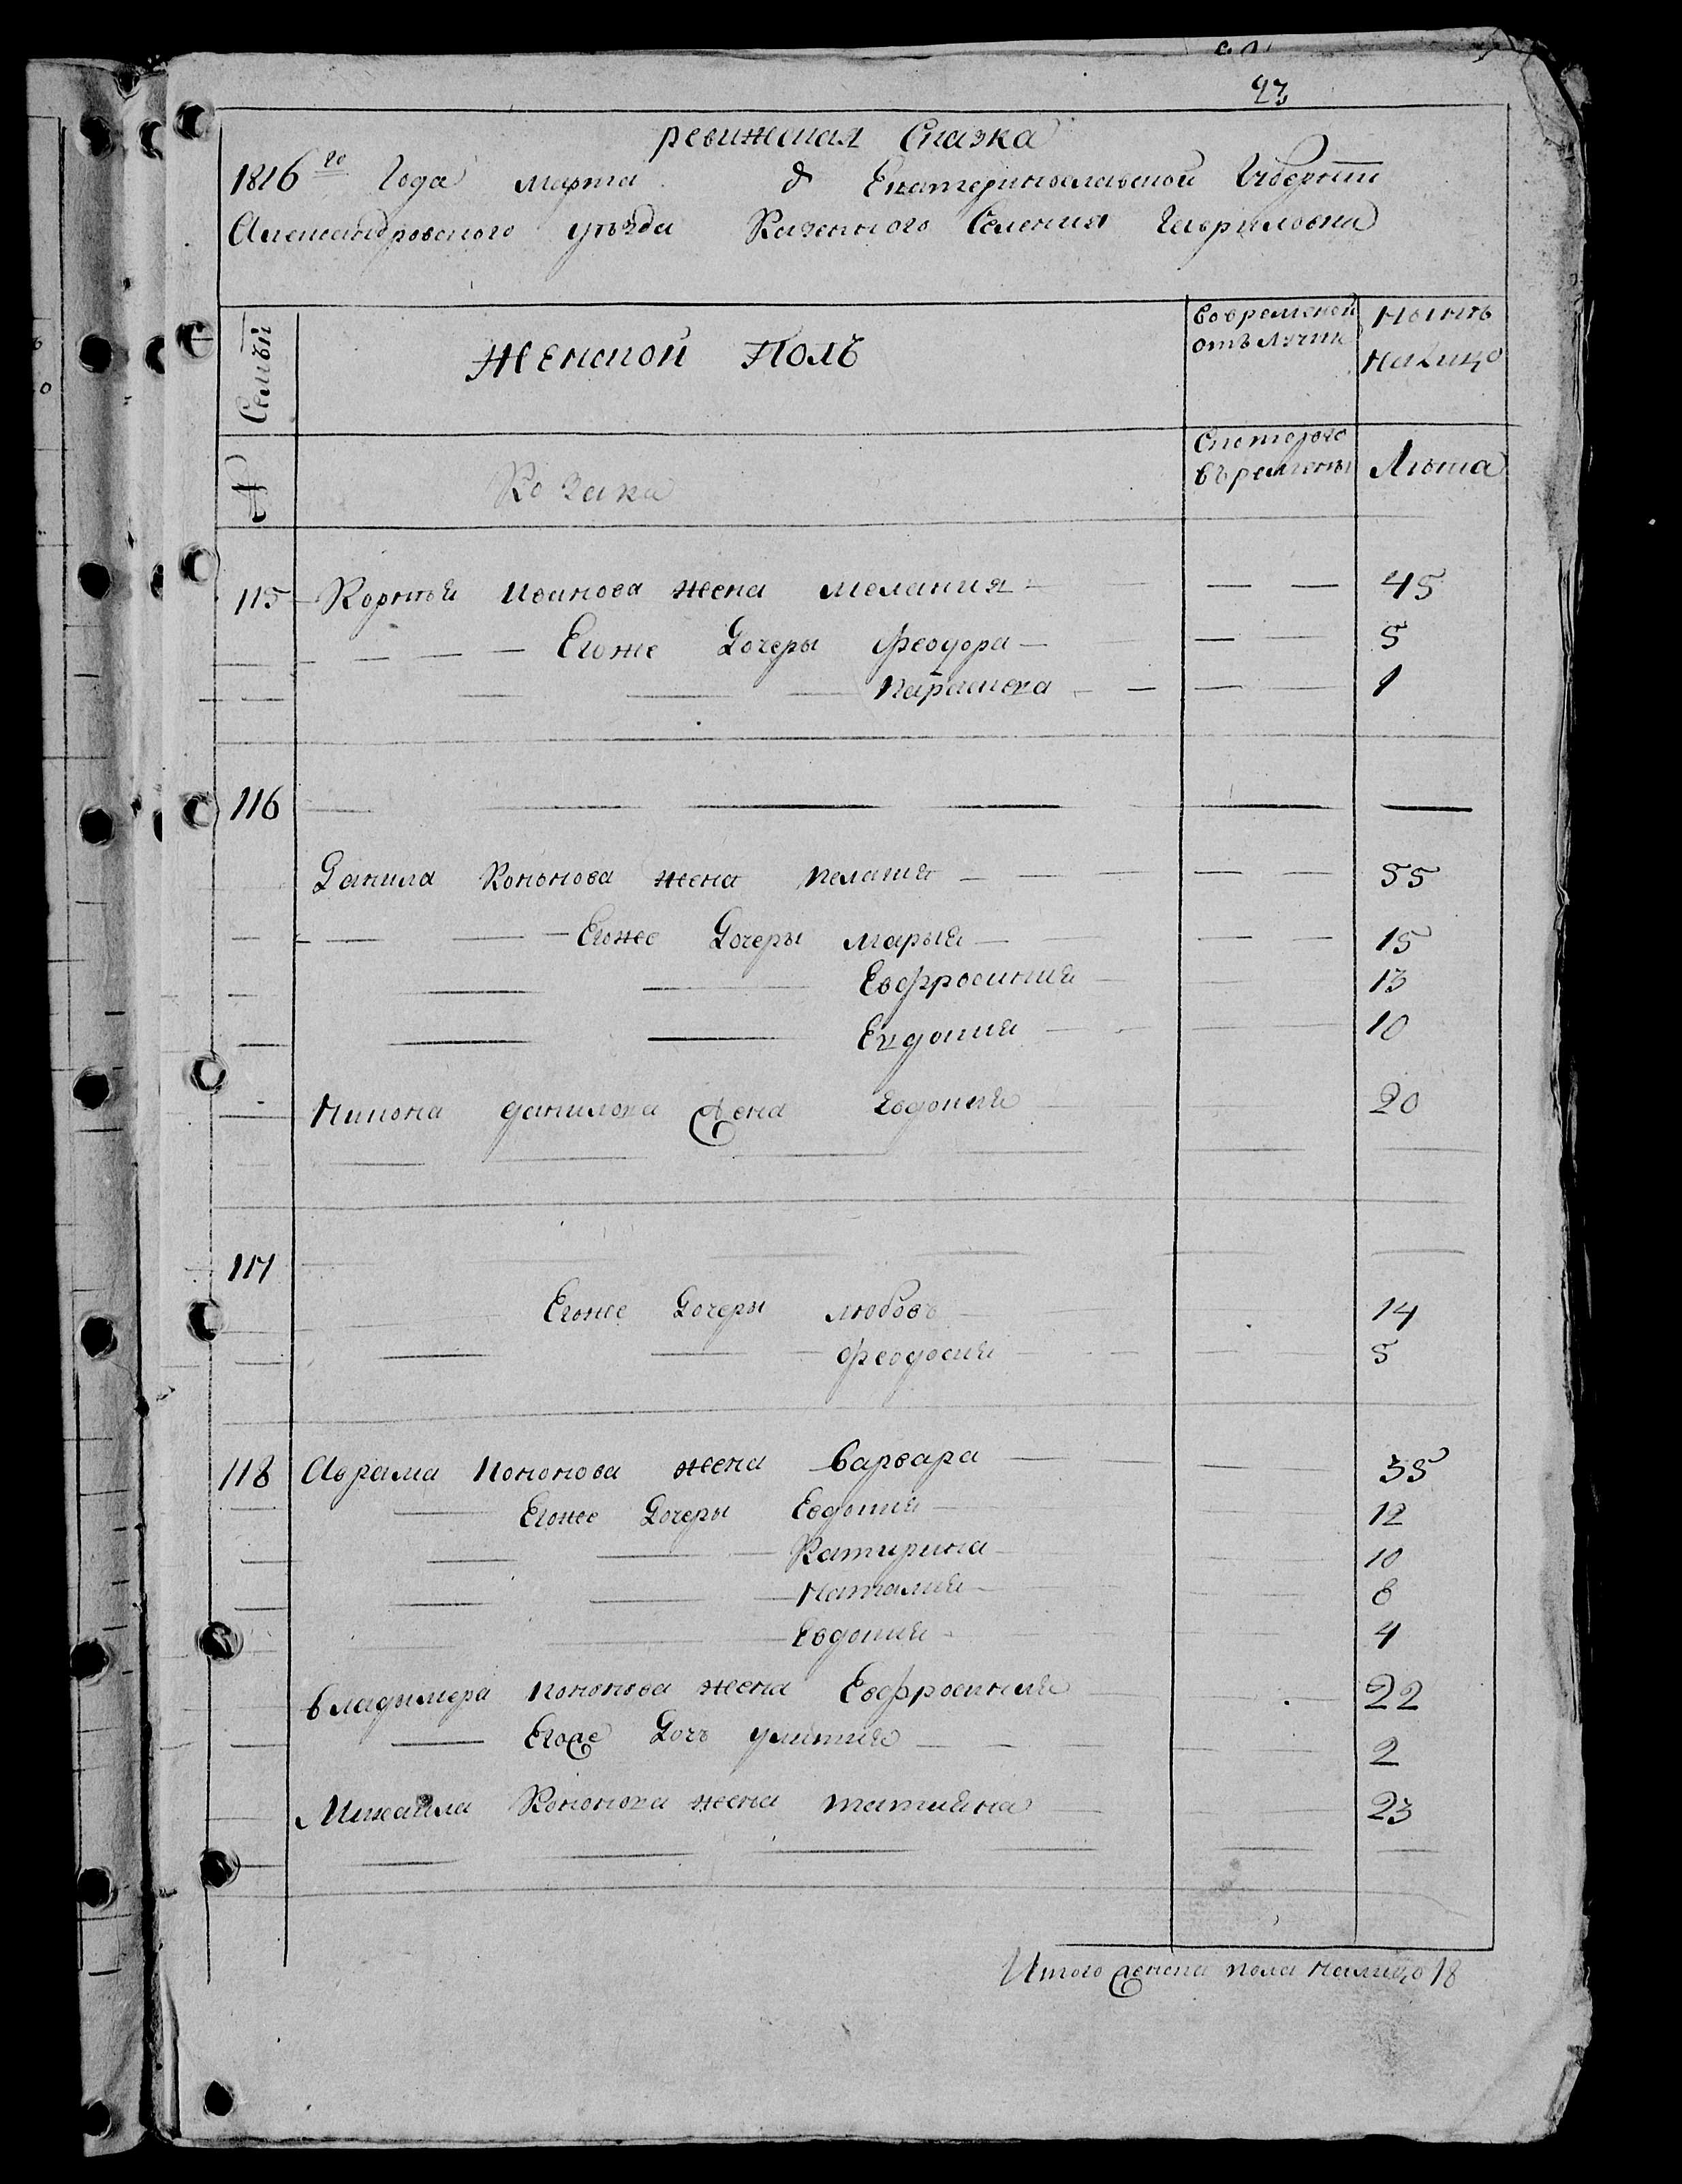 93
ревижская Сказка
1816го Года марта д Екатеринославской Губернии
Александровского уѣзда Казенного Селения Гавриловка
Семьи
Женской Полъ
Во временной отълучки
Нынѣ налицо
№
Козака
Скоторого въремени
Лѣта
115 Корнѣя Иванова жена мелания — — 45
Егоже Дочеры феодора — — 5
Параска — — 1
116
Данила Кононова жена пелагия — — 55
Егоже Дочеры марыя — — 15
Евфросиния — 13
Евдокия — 10
Никона данилова жена Евдокия 20
117
Егоже Дочеры любовъ 14
феодосия 5
118 Аврама Кононова жена варвара 35
Егоже Дочеры Евдокия 12
Катирина 10
Наталия 8
Евдокия 4
владимера кононова жена Евфросиния 22
Егоже Дочъ улития 2
Михаила Кононова жена татияна 23
Итого женска пола налицо 18